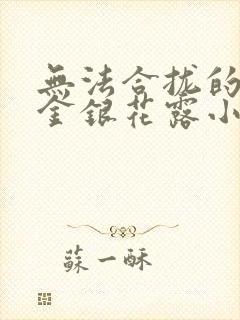 無法合拢的
金銀花露小
蘇一酥